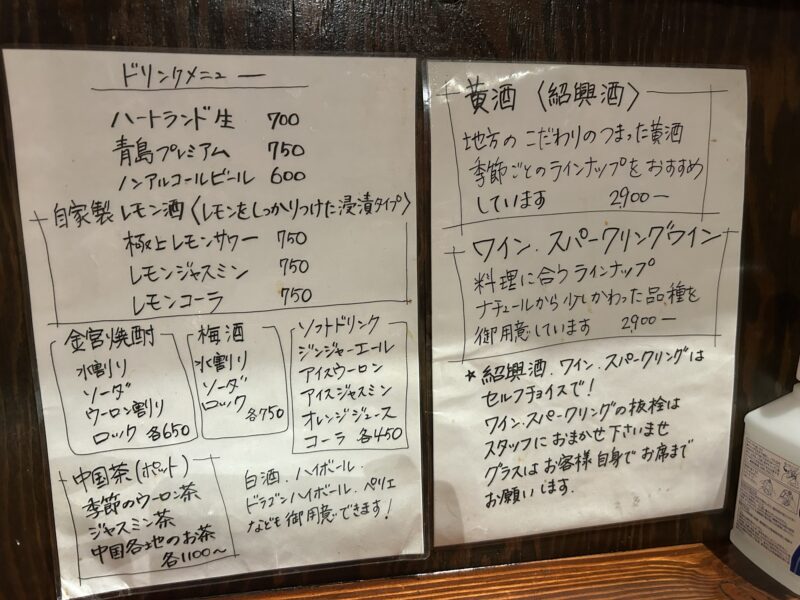 ドリンクメニュー
ハートランド生 700
青島プレミアム 750
ノンアルコールビール 600
自家製レモン酒〈レモンをしっかりつけた浸漬タイプ〉
極上レモンサワー 750
レモンジャスミン 750
レモンコーラ 750
金宮焼酎
水割り
ソーダ
ウーロン割り
ロック 各650
梅酒
水割り
ソーダ
ロック 各750
ソフトドリンク
ジンジャーエール
アイスウーロン
アイスジャスミン
オレンジジュース
コーラ 各450
中国茶(ポット)
季節のウーロン茶
ジャスミン茶
中国各地のお茶
各1100〜
白酒.ハイボール.
ドラゴンハイボール.ペリエ
なども御用意できます!
黄酒〈紹興酒〉
地方のこだわりのつまった黄酒
季節ごとのラインナップをおすすめ
しています 2,900ー
ワイン.スパークリングワイン
料理に合うラインナップ
ナチュールから少しかわった品種を
御用意しています 2,900ー
★紹興酒.ワイン.スパークリングは
セルフチョイスで!
ワイン.スパークリングの抜栓は
スタッフにおまかせ下さいませ
グラスはお客様自身でお席まで
お願いします.